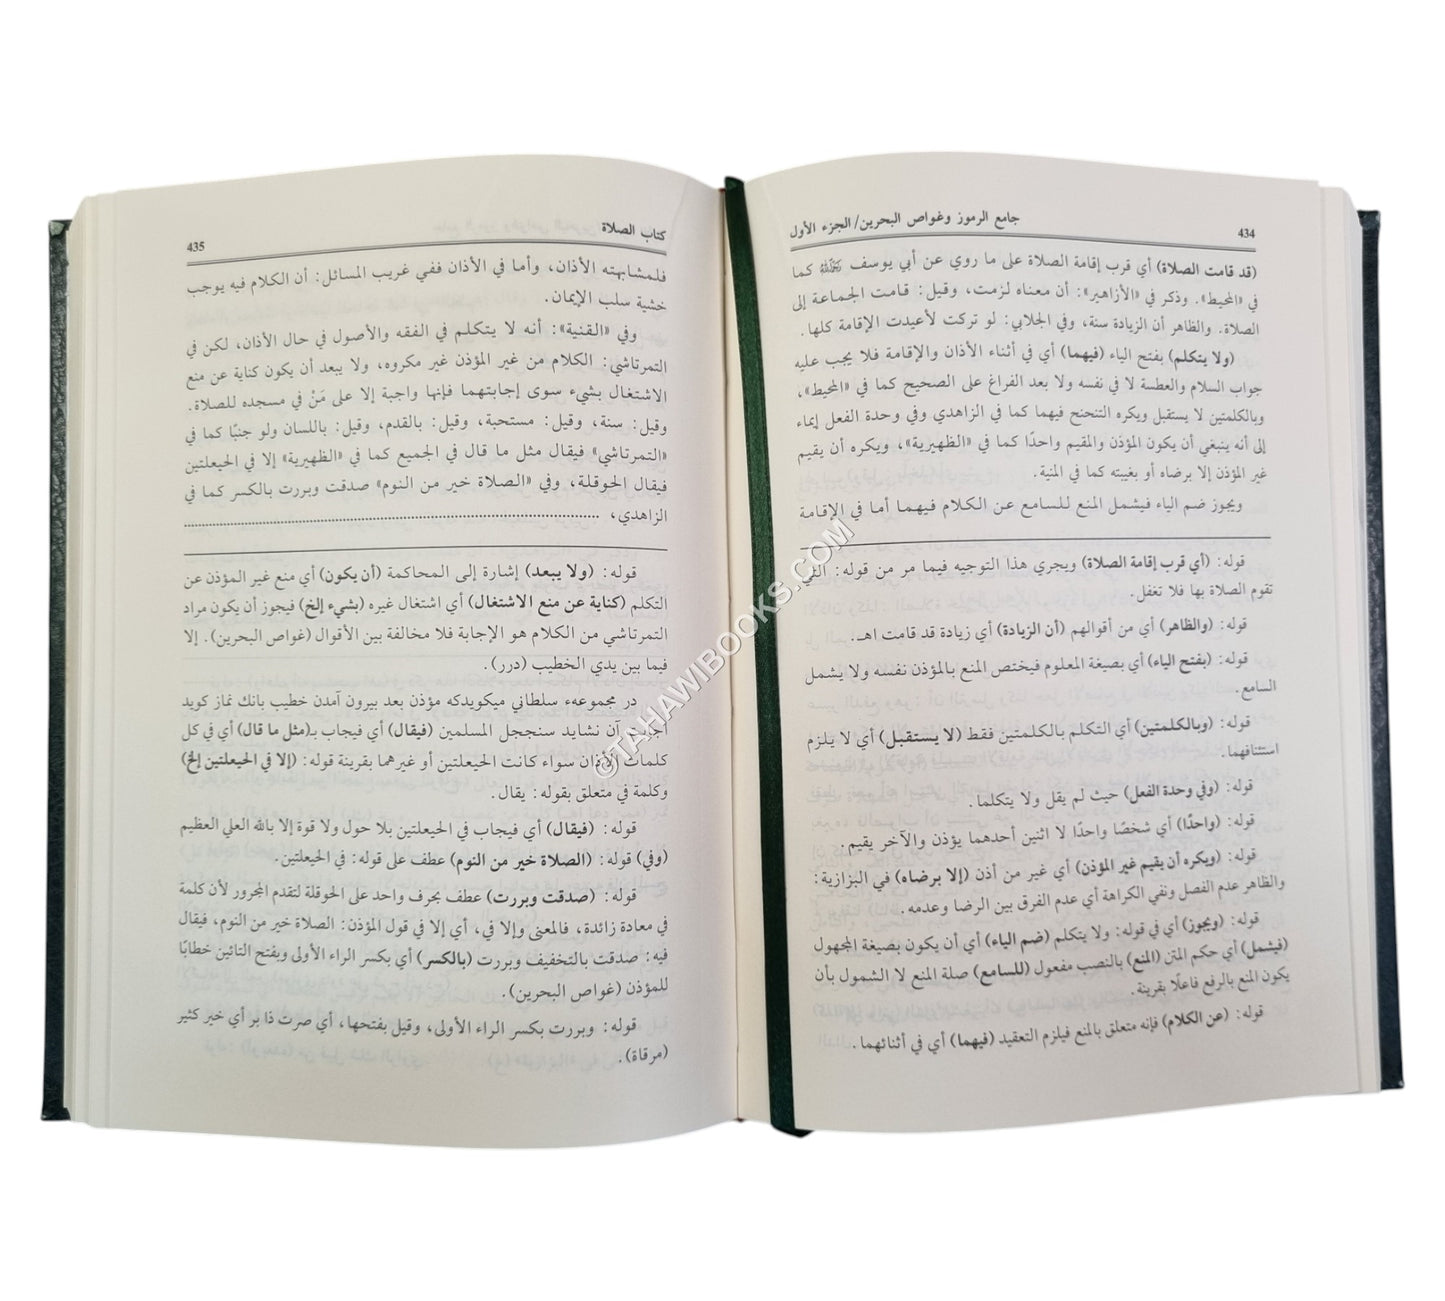 434
جامع الرموز وغواص البحرين/ الجزء الأول
(قد قامت الصلاة) أي قرب إقامة الصلاة على ما روي عن أبي يوسف رحمه الله كما
في «المحيط». وذكر في «الأزاهير»: أن معناه لزمت، وقيل: قامت الجماعة إلى
الصلاة. والظاهر أن الزيادة سنة، وفي الجلابي: لو تركت لأعيدت الإقامة كلها.
(ولا يتكلم) بفتح الياء (فيهما) أي في أثناء الأذان والإقامة فلا يجب عليه
جواب السلام والعطسة لا في نفسه ولا بعد الفراغ على الصحيح كما في «المحيط»،
وبالكلمتين لا يستقبل ويكره التنحنح فيهما كما في الزاهدي وفي وحدة الفعل إيماء
إلى أنه ينبغي أن يكون المؤذن والمقيم واحدًا كما في «الظهيرية»، ويكره أن يقيم
غير المؤذن إلا برضاه أو بغيبته كما في المنية.
ويجوز ضم الياء فيشمل المنع للسامع عن الكلام فيهما أما في الإقامة
قوله: (أي قرب إقامة الصلاة) ويجري هذا التوجيه فيما مر من قوله: اللتي
تقوم الصلاة بها فلا تغفل.
قوله: (والظاهر) أي من أقوالهم (أن الزيادة) أي زيادة قد قامت اهـ.
قوله: (بفتح الياء) أي بصيغة المعلوم فيختص المنع بالمؤذن نفسه ولا يشمل
السامع.
قوله: (وبالكلمتين) أي التكلم بالكلمتين فقط (لا يستقبل) أي لا يلزم
استئنافهما.
قوله: (وفي وحدة الفعل) حيث لم يقل ولا يتكلما.
قوله: (واحدًا) أي شخصًا واحدًا لا اثنين أحدهما يؤذن والآخر يقيم.
قوله: (ويكره أن يقيم غير المؤذن) أي غير من أذن (إلا برضاه) في البزازية:
والظاهر عدم الفصل ونفي الكراهة أي عدم الفرق بين الرضا وعدمه.
قوله: (ويجوز) أي في قوله: ولا يتكلم (ضم الياء) أي أن يكون بصيغة المجهول
(فيشمل) أي حكم المتن (المنع) بالنصب مفعول (للسامع) صلة المنع لا الشمول بأن
يكون المنع بالرفع فاعلًا بقرينة.
قوله: (عن الكلام) فإنه متعلق بالمنع فيلزم التعقيد (فيهما) أي في أثنائهما.
كتاب الصلاة
435
فلمشابهته الأذان، وأما في الأذان ففي غريب المسائل: أن الكلام فيه يوجب
خشية سلب الإيمان.
وفي «القنية»: أنه لا يتكلم في الفقه والأصول في حال الأذان، لكن في
التمرتاشي: الكلام من غير المؤذن غير مكروه، ولا يبعد أن يكون كناية عن منع
الاشتغال بشيء سوى إجابتهما فإنها واجبة إلا على مَنْ في مسجده للصلاة.
وقيل: سنة، وقيل: مستحبة، وقيل: بالقدم، وقيل: باللسان ولو جنبًا كما في
«التمرتاشي» فيقال مثل ما قال في الجميع كما في «الظهيرية» إلا في الحيعلتين
فيقال الحوقلة، وفي «الصلاة خير من النوم» صدقت وبررت بالكسر كما في
الزاهدي، ........................................
قوله: (ولا يبعد) إشارة إلى المحاكمة (أن يكون) أي منع غير المؤذن عن
التكلم (كناية عن منع الاشتغال) أي اشتغال غيره (بشيء إلخ) فيجوز أن يكون مراد
التمرتاشي من الكلام هو الإجابة فلا مخالفة بين الأقوال (غواص البحرين). إلا
فيما بين يدي الخطيب (درر).
در مجموعهء سلطاني ميكويدكه مؤذن بعد بيرون آمدن خطيب بانك نماز كويد
آن نشايد سنججل المسلمين (فيقال) أي فيجاب بـ(مثل ما قال) أي في كل
كلمات الأذان سواء كانت الحيعلتين أو غيرهما بقرينة قوله: (إلا في الحيعلتين إلخ)
وكلمة في متعلق بقوله: يقال.
قوله: (فيقال) أي فيجاب في الحيعلتين بلا حول ولا قوة إلا بالله العلي العظيم
(وفي) قوله: (الصلاة خير من النوم) عطف على قوله: في الحيعلتين.
قوله: (صدقت وبررت) عطف بحرف واحد على الحوقلة لتقدم المجرور لأن كلمة
في معادة زائدة، فالمعنى وإلا في، أي إلا في قول المؤذن: الصلاة خير من النوم، فيقال
فيه: صدقت بالتخفيف وبررت (بالكسر) أي بكسر الراء الأولى وبفتح التائين خطابًا
للمؤذن (غواص البحرين).
قوله: وبررت بكسر الراء الأولى، وقيل بفتحها، أي صرت ذا بر أي خير كثير
(مرقاة).
©TAHAWIBOOKS.COM